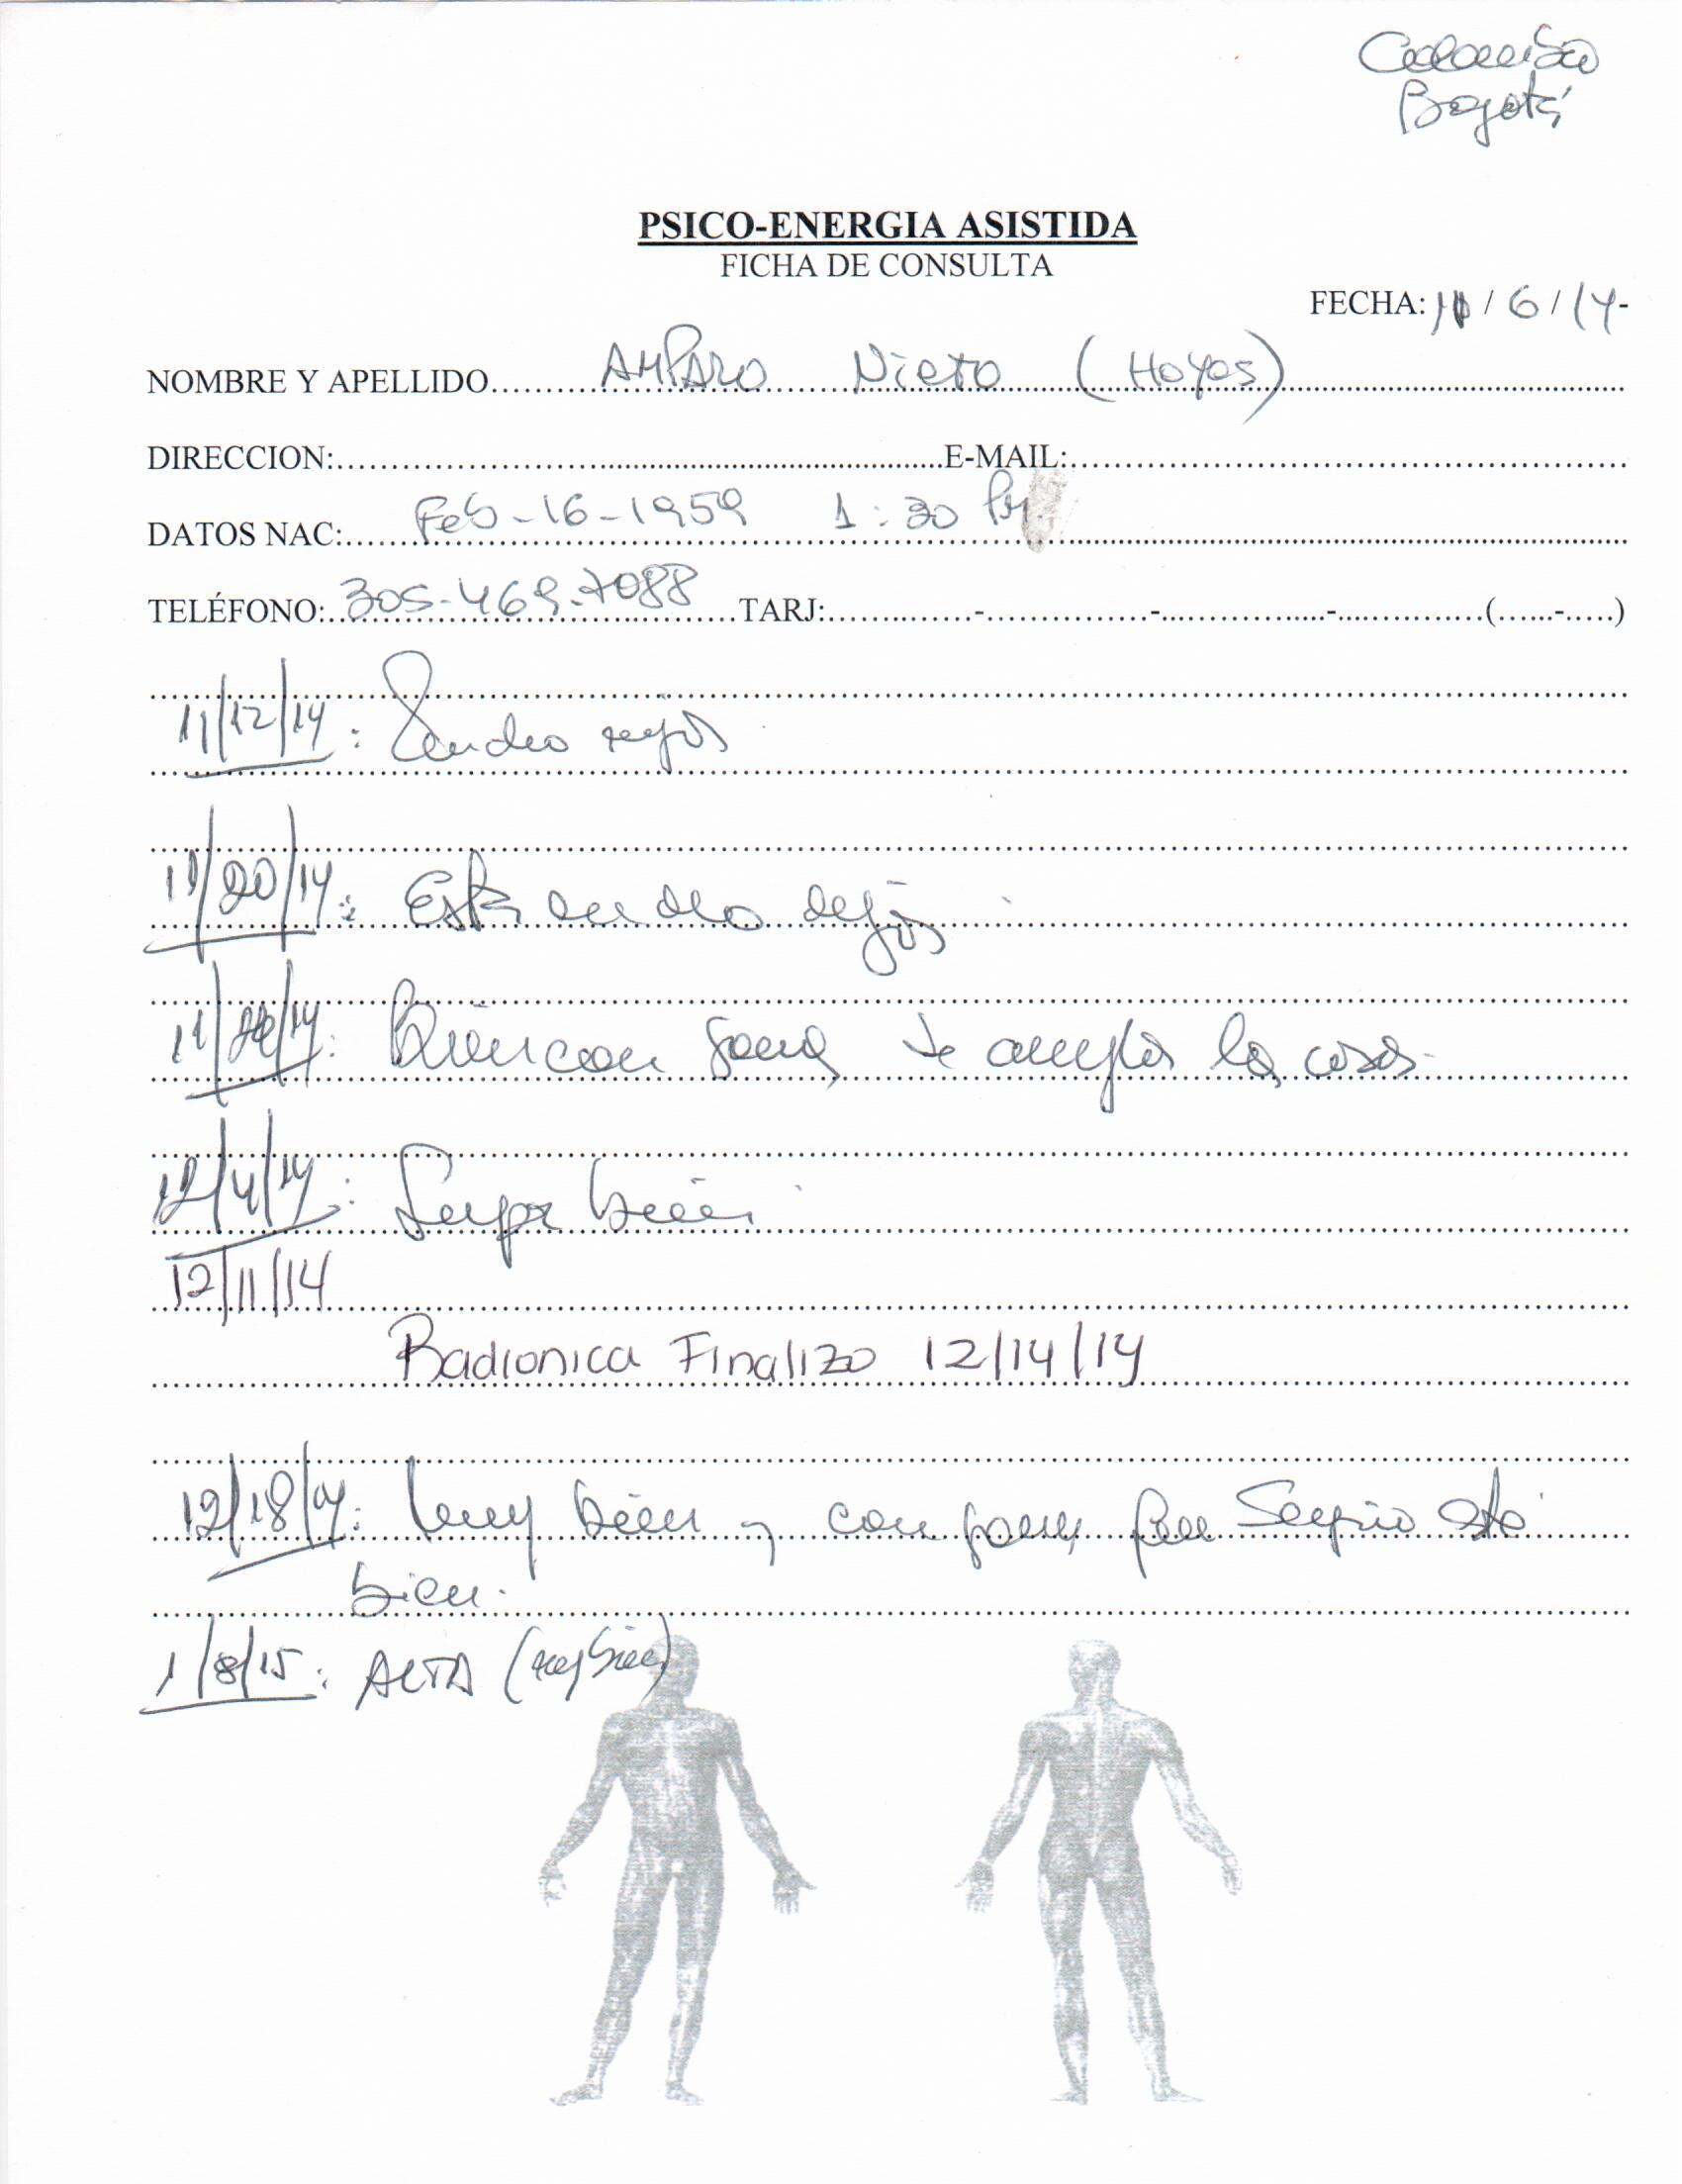 Colombia
Bogotá
PSICO-ENERGIA ASISTIDA
FICHA DE CONSULTA
FECHA: 11 / 6 / 14-
NOMBRE Y APELLIDO AMPARO Nieto (Hoyos)
DIRECCION: E-MAIL:
DATOS NAC: Feb-16-1959 1:30 PM.
TELÉFONO: 305-469-7088 TARJ: - - - ( - )
11/12/14: mucho mejor
11/20/14: Está mucho mejor
11/ /14: Bien con ganas, las cosas.
12/4/14: Super bien
12/11/14
Radionica Finalizo 12/14/14
12/18/14: muy bien y con ganas, Sergio está
bien.
1/8/15: ALTA (muy bien)